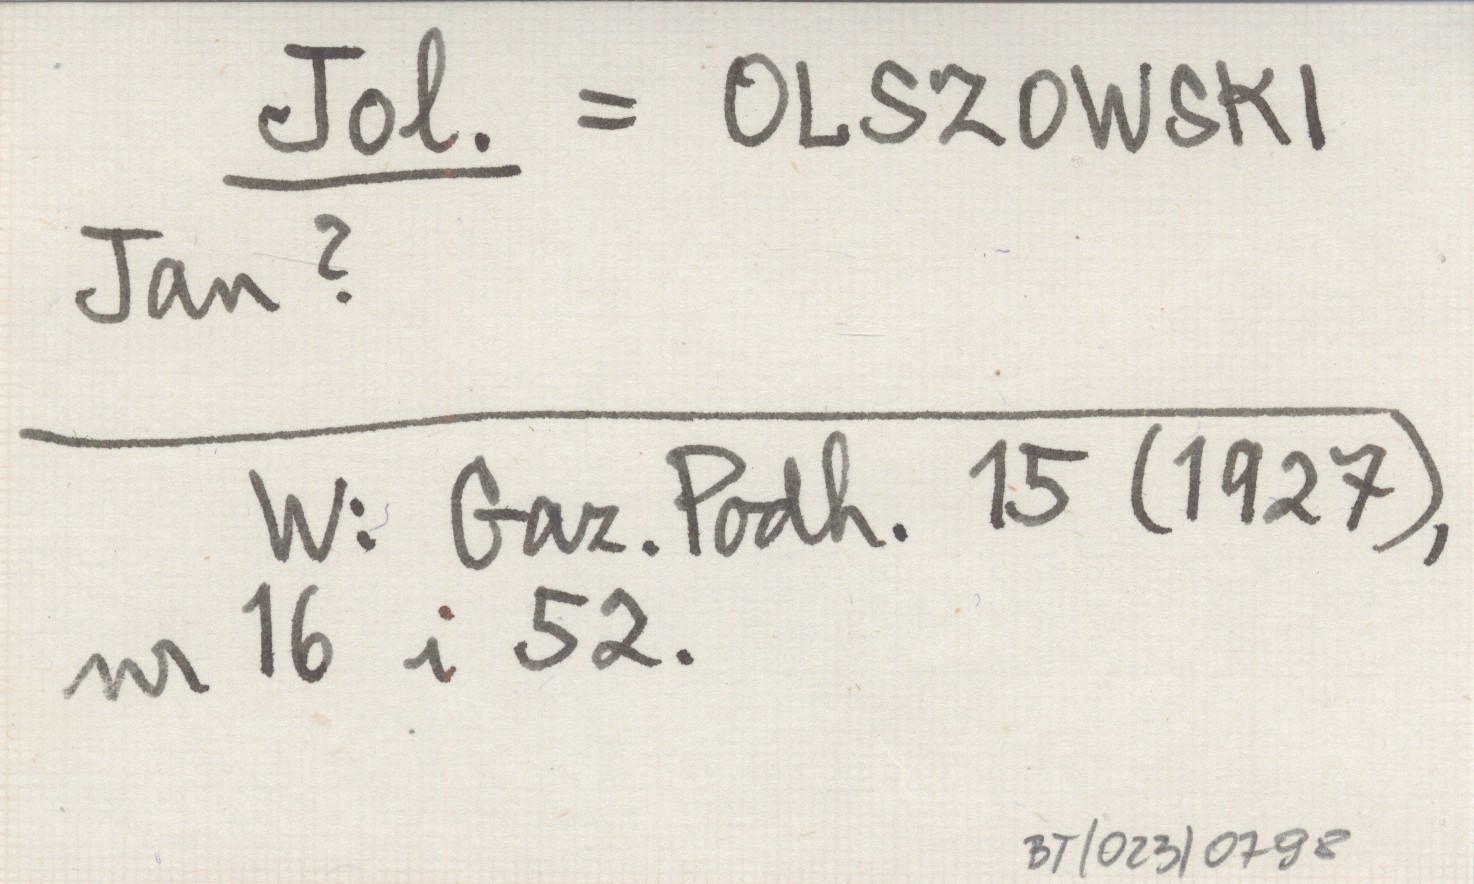 Jol. = OLSZOWSKI
Jan?
W: Gaz. Podh. 15 (1927),
nr 16 i 52.
BT/023/0798